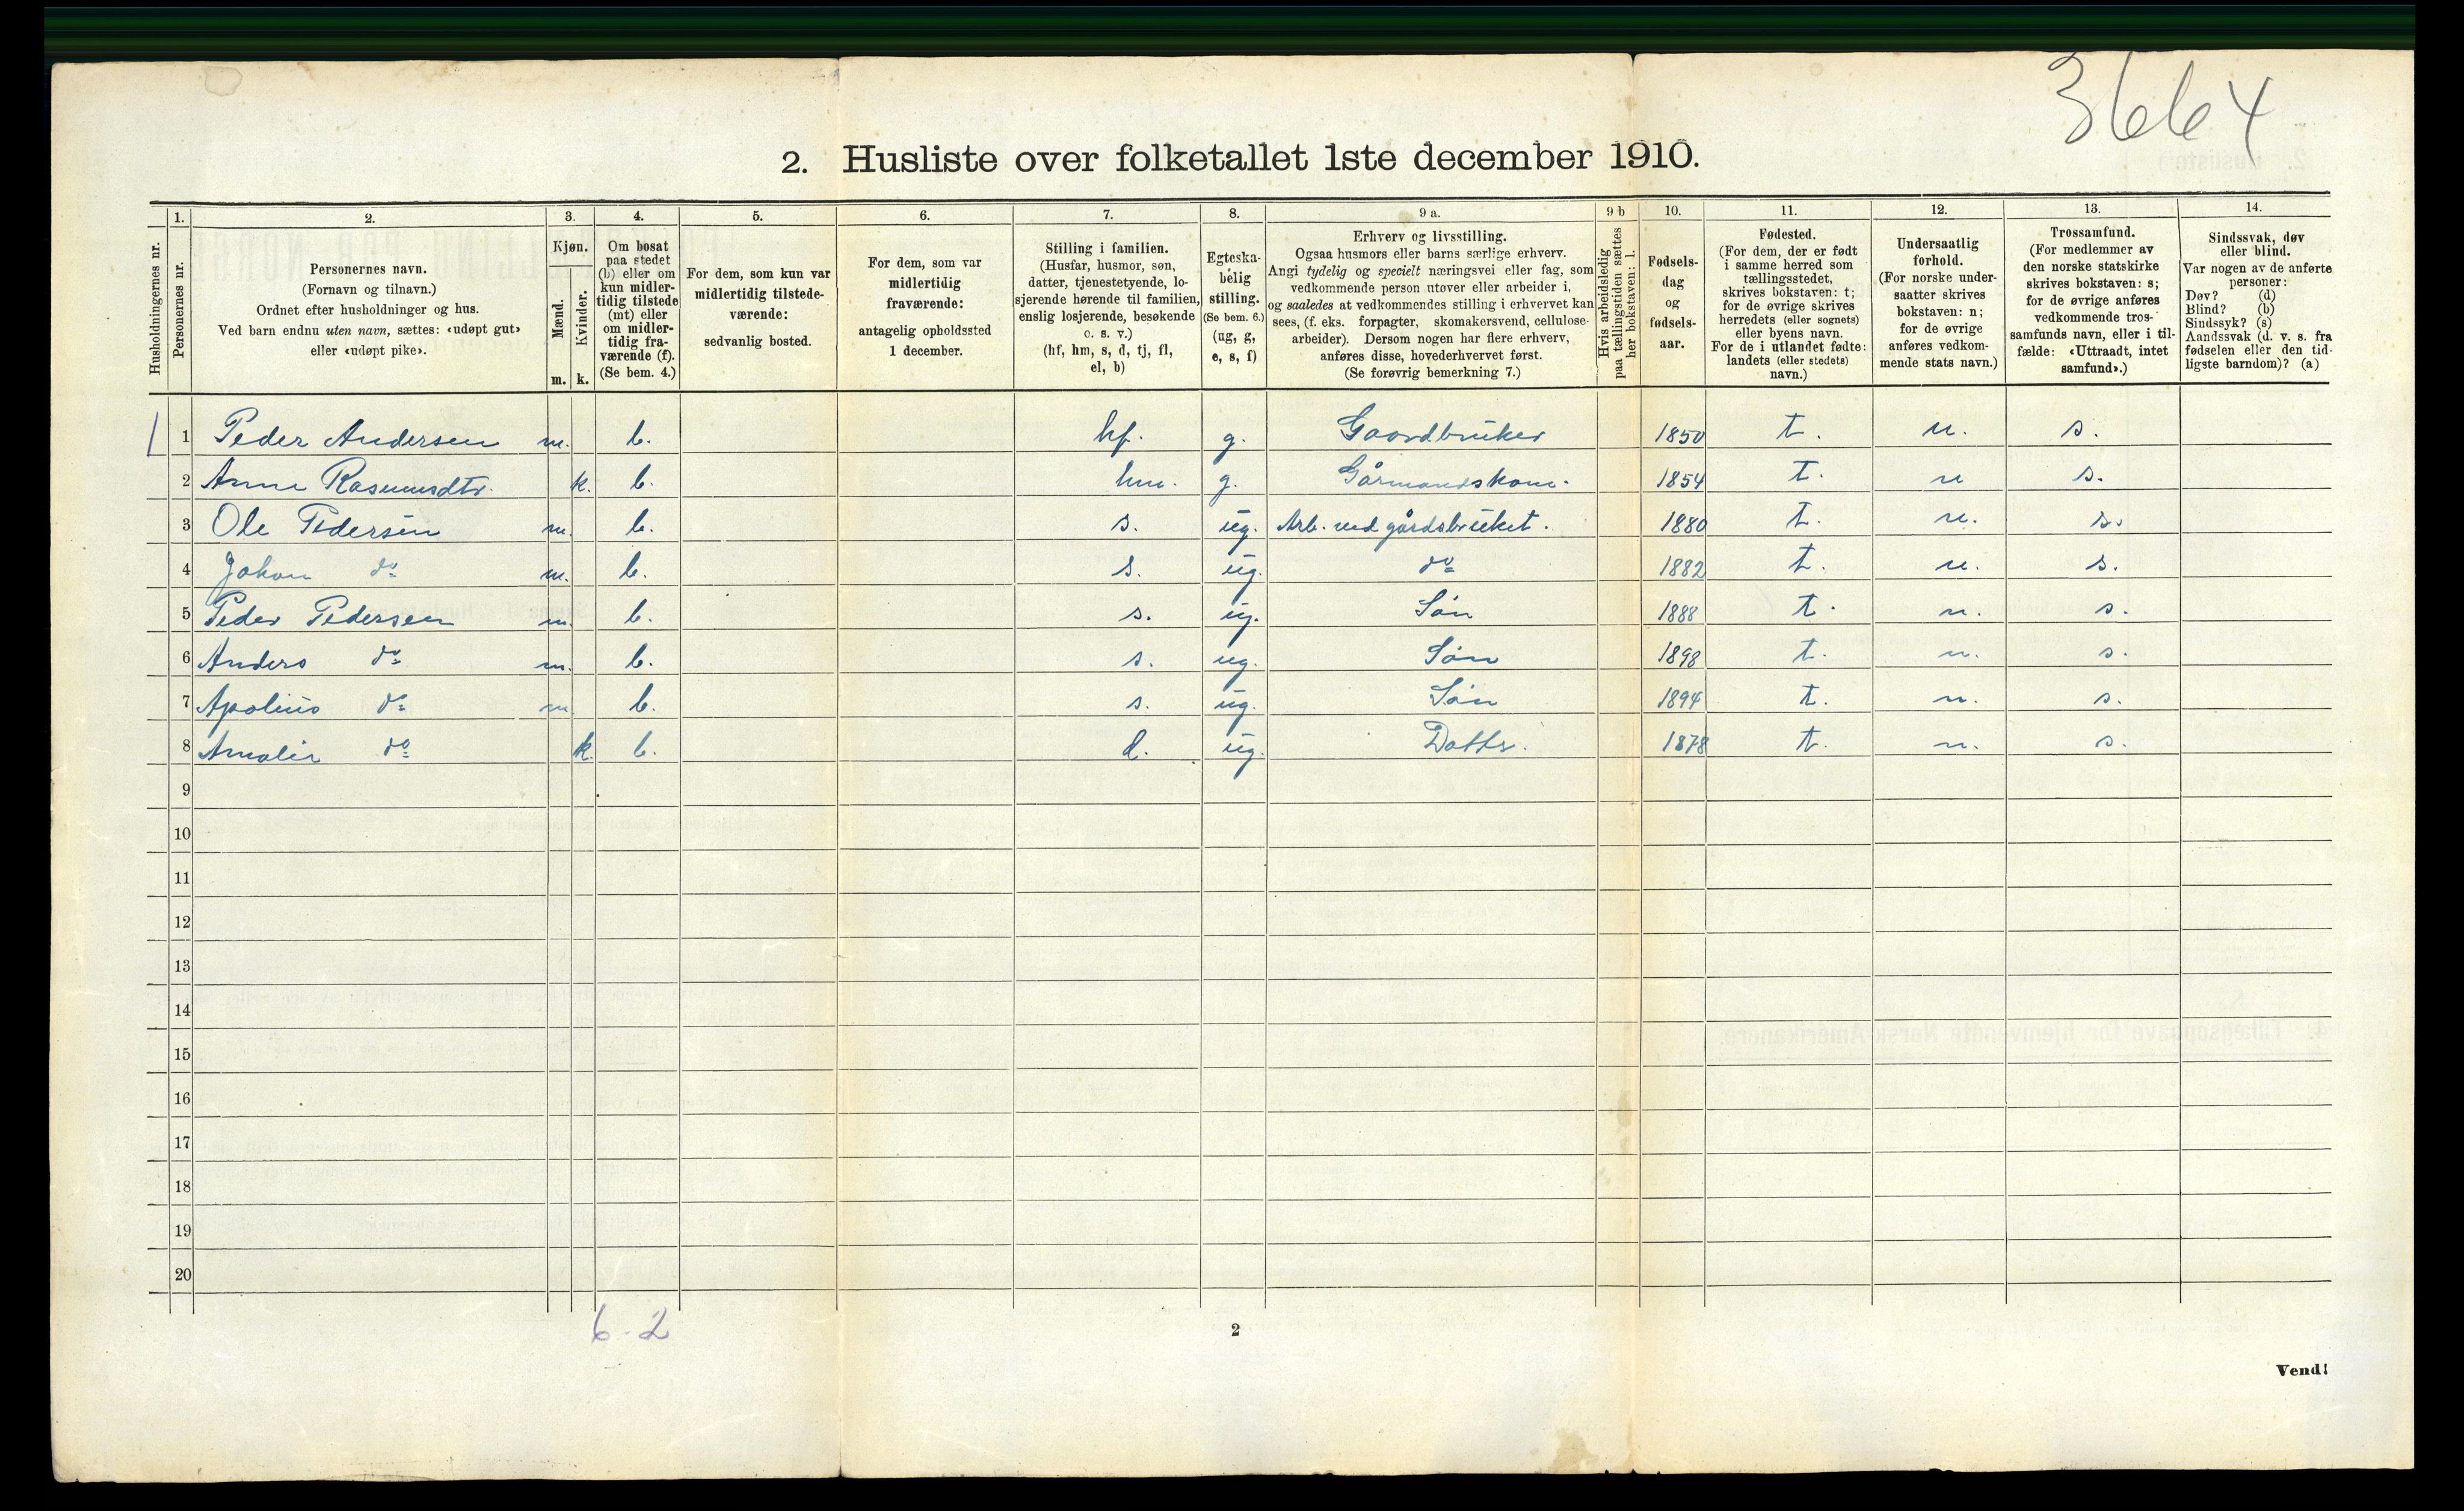 3664
2. Husliste over folketallet 1ste december 1910.
Husholdningernes nr.
1. Personernes nr.
2. Personernes navn.
(Fornavn og tilnavn.)
Ordnet efter husholdninger og hus.
Ved barn endnu uten navn, sættes: «udøpt gut»
eller «udøpt pike».
3. Kjøn.
Mænd. Kvinder.
m. k.
4. Om bosat
paa stedet
(b) eller om
kun midler-
tidig tilstede
(mt) eller
om midler-
tidig fra-
værende (f).
(Se bem. 4.)
5. For dem, som kun var
midlertidig tilstede-
værende:
sedvanlig bosted.
6. For dem, som var
midlertidig
fraværende:
antagelig opholdssted
1 december.
7. Stilling i familien.
(Husfar, husmor, søn,
datter, tjenestetyende, lo-
sjerende hørende til familien,
enslig losjerende, besøkende
o. s. v.)
(hf, hm, s, d, tj, fl,
el, b)
8. Egteska-
belig
stilling.
(Se bem. 6.)
(ug, g,
e, s, f)
9 a. Erhverv og livsstilling.
Ogsaa husmors eller barns særlige erhverv.
Angi tydelig og specielt næringsvei eller fag, som
vedkommende person utøver eller arbeider i,
og saaledes at vedkommendes stilling i erhvervet kan
sees, (f. eks. forpagter, skomakersvend, cellulose-
arbeider). Dersom nogen har flere erhverv,
anføres disse, hovederhvervet først.
(Se forøvrig bemerkning 7.)
9 b Hvis arbeidsledig
paa tællingstiden sættes
her bokstaven: l.
10. Fødsels-
dag
og
fødsels-
aar.
11. Fødested.
(For dem, der er født
i samme herred som
tællingsstedet,
skrives bokstaven: t;
for de øvrige skrives
herredets (eller sognets)
eller byens navn.
For de i utlandet fødte:
landets (eller stedets)
navn.)
12. Undersaatlig
forhold.
(For norske under-
saatter skrives
bokstaven: n;
for de øvrige
anføres vedkom-
mende stats navn.)
13. Trossamfund.
(For medlemmer av
den norske statskirke
skrives bokstaven: s;
for de øvrige anføres
vedkommende tros-
samfunds navn, eller i til-
fælde: «Uttraadt, intet
samfund».)
14. Sindssvak, døv
eller blind.
Var nogen av de anførte
personer:
Døv? (d)
Blind? (b)
Sindssyk? (s)
Aandssvak (d. v. s. fra
fødselen eller den tid-
ligste barndom)? (a)
1 1 Peder Andersen m. b. hf. g. Gaardbruker 1850 t. n. s.
2 Anne Rasmusdtr. k. b. hm. g. Gårmandskone. 1854 t. n s.
3 Ole Pedersen m. b. s. ug. Arb. ved gårdsbruket. 1880 t. n. s.
4 Johan do m. b. s. ug. do 1882 t. n. s.
5 Peder Pedersen m. b. s. ug. Søn 1888 t. n. s.
6 Anders do m. b. s. ug. Søn 1898 t. n. s.
7 Apolius do m. b. s. ug. Søn 1894 t. n. s.
8 Amalie do k. b. d. ug. Datter. 1878 t. n. s.
9
10
11
12
13
14
15
16
17
18
19
20
6-2
2
Vend!